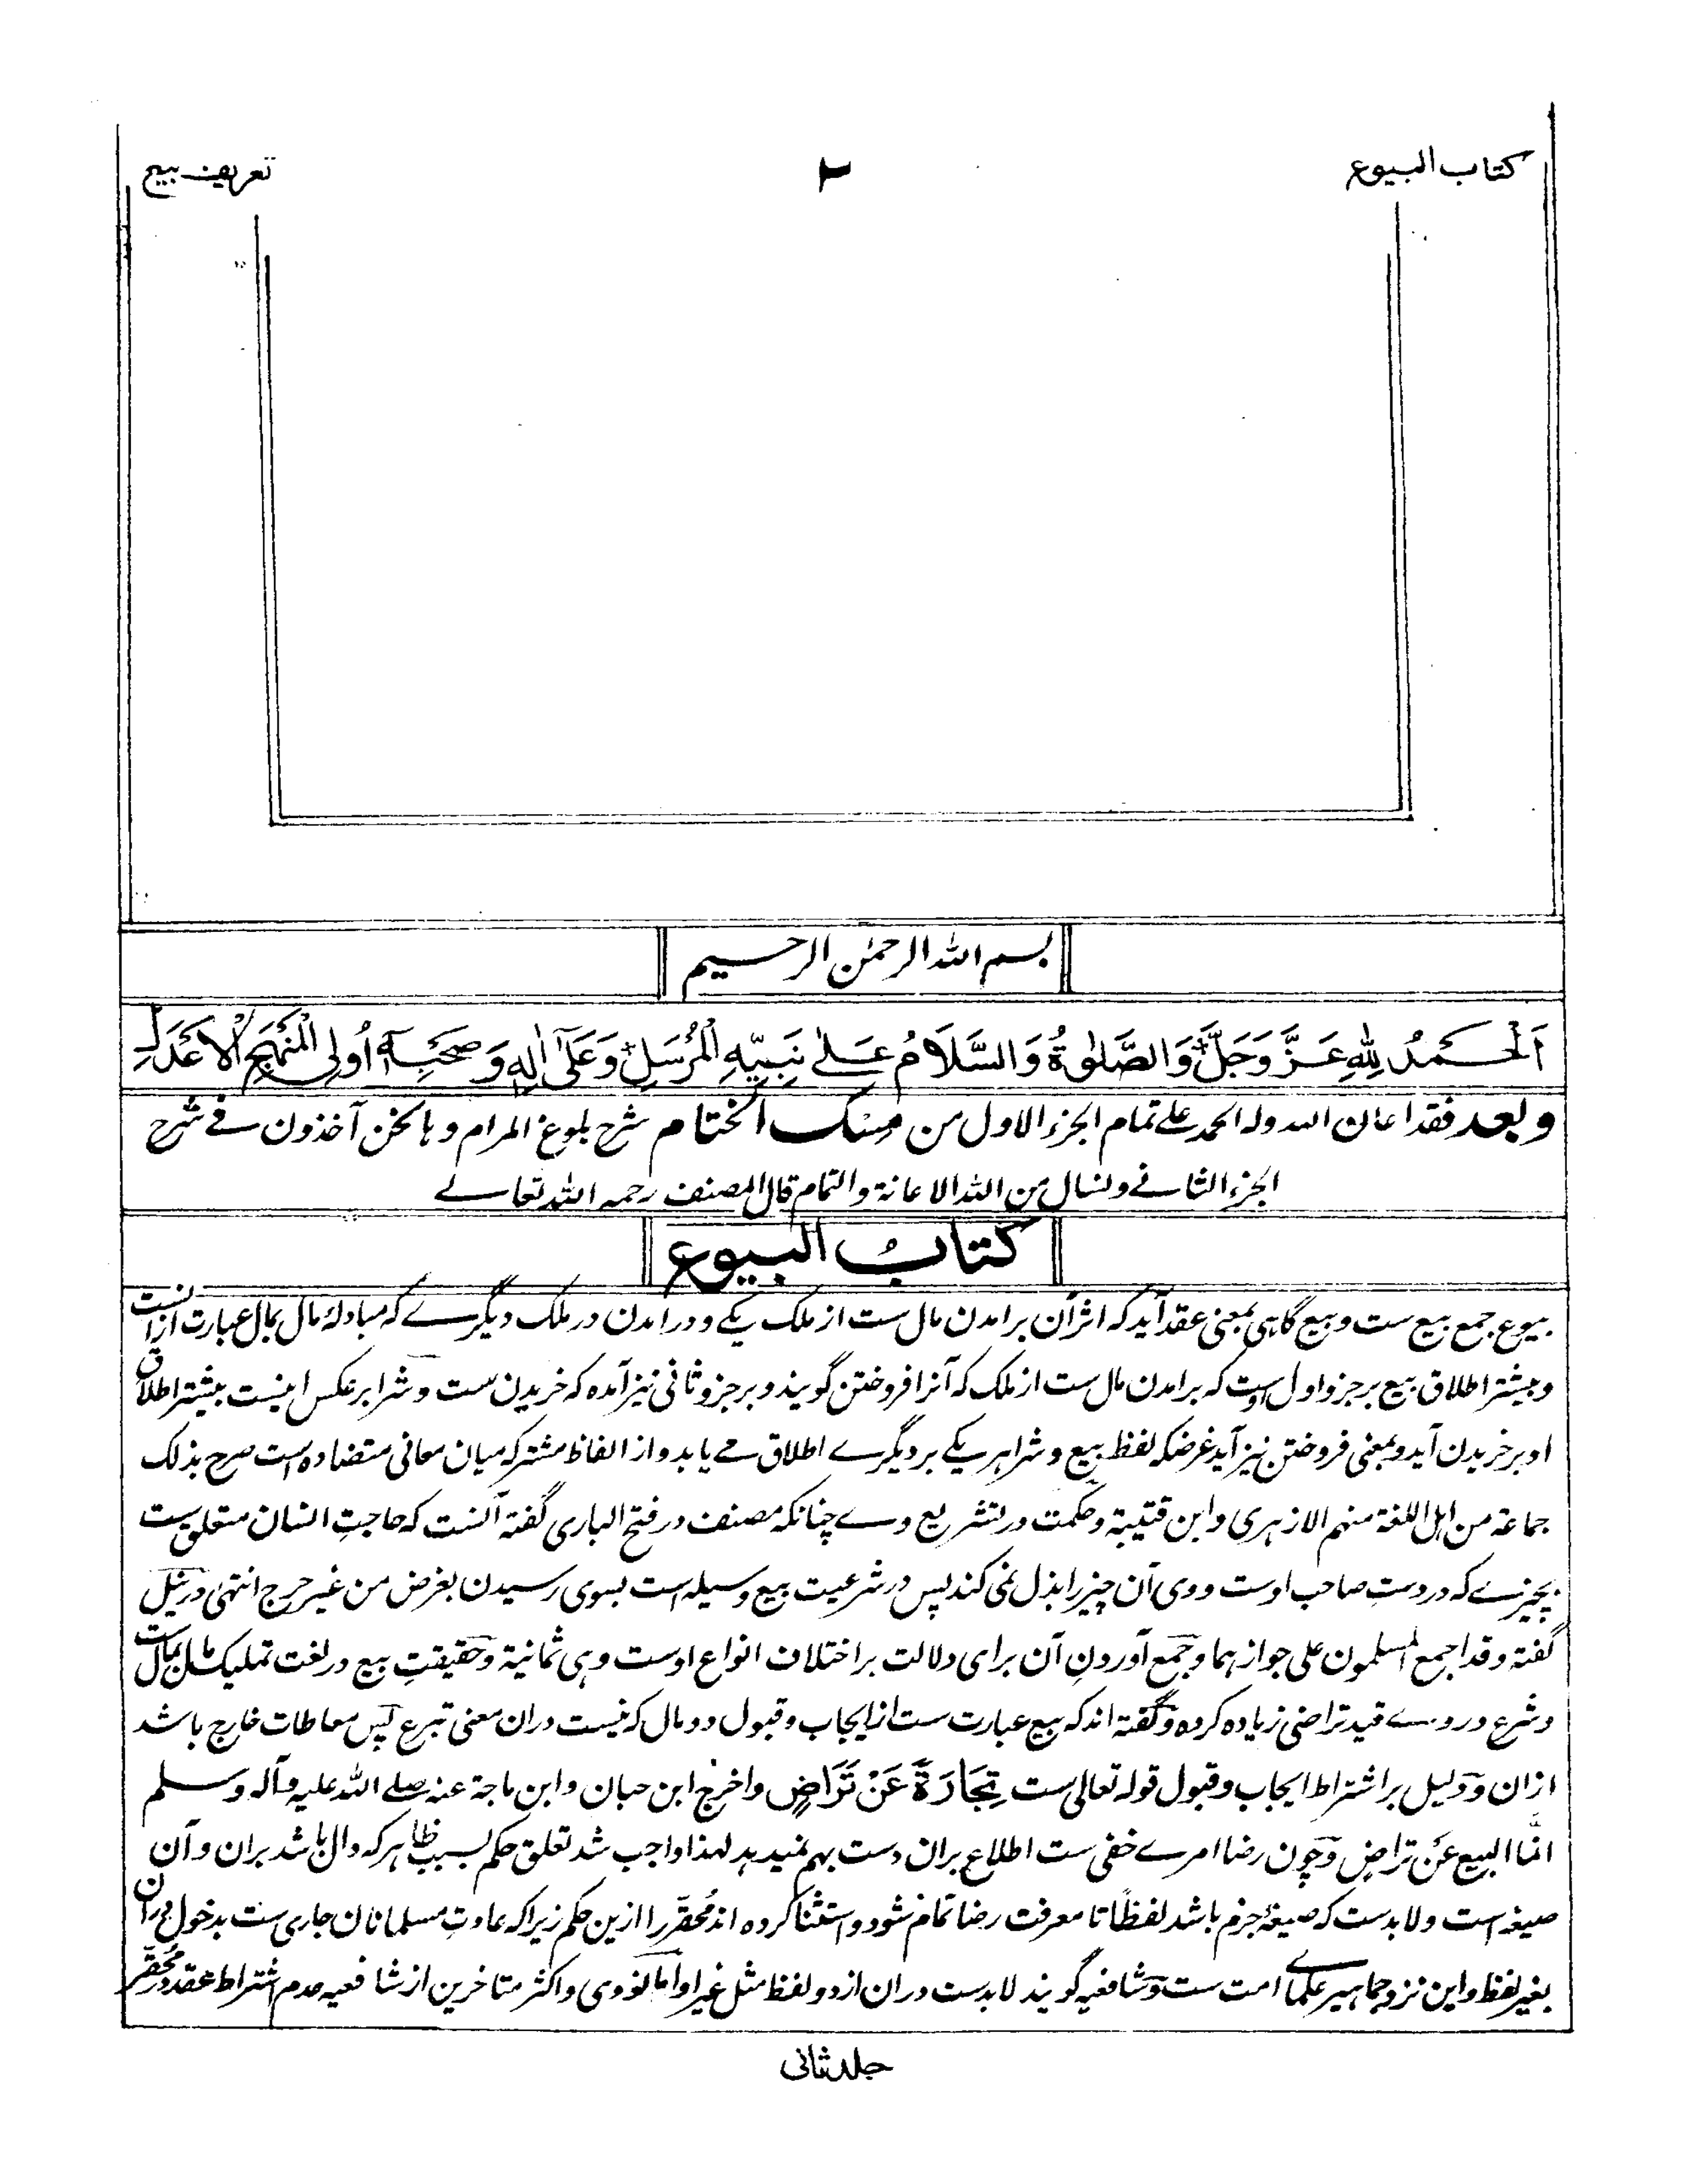 کتاب البیوع
۲
تعریف بیع
بسم اللہ الرحمٰن الرحیم
اَلْحَمْدُ لِلّٰهِ عَزَّ وَجَلَّ وَالصَّلٰوةُ وَالسَّلَامُ عَلٰے نَبِیِّهِ الْمُرْسَلِ وَعَلٰٓی اٰلِهٖ وَصَحْبِهٖٓ اُولِی الْمَنْهَجِ الْاَعْدَلِ
وبعد فقد اعان اللہ ولہ الحمد علے تمام الجزء الاول من مسک الختام شرح بلوغ المرام وہا نحن آخذون فے شرح
الجزء الثانے ونسال من اللہ الاعانۃ والتمام قال المصنف رحمہ اللہ تعالے
کتابُ البیُوع
بیوع جمع بیع ست و بیع گاہی بمعنی عقد آید کہ اثر آن برامدن مال ست از ملک یکے و درامدن در ملک دیگرے کہ مبادلۂ مال بمال عبارت ازانست
و بیشتر اطلاق بیع بر جزو اول اوست کہ برامدن مال ست از ملک کہ آنرا فروختن گویند و بر جزو ثانی نیز آمدہ کہ خریدن ست و شرا برعکس اینست بیشتر اطلاق
او بر خریدن آید و بمعنی فروختن نیز آید غرضکہ لفظ بیع و شرا ہر یکے بر دیگرے اطلاق مے یابد و از الفاظ مشترکہ میان معانی متضادہ است صرح بذلک
جماعۃ من اہل اللغۃ منہم الازہری و ابن قتیبۃ و حکمت در تشریع وے چنانکہ مصنف در فتح الباری گفتہ آنست کہ حاجتِ انسان متعلق ست
بچیزے کہ در دستِ صاحب اوست و وی آن چیز را بذل نمی کند پس در شرعیت بیع وسیلہ است بسوی رسیدن بغرض من غیر حرج انتہیٰ در نیل
گفتہ وقد اجمع المسلمون علی جوازہما و جمع آوردن آن برای دلالت بر اختلاف انواع اوست وہی ثمانیۃ و حقیقتِ بیع در لغت تملیک مال بمال ست
و شرع در وے قید تراضی زیادہ کردہ و گفتہ اند کہ بیع عبارت ست از ایجاب و قبول در دو مال کہ نیست دران معنی تبرع پس معاطات خارج باشد
ازان و دلیل بر اشتراط ایجاب و قبول قولہ تعالی ست تِجَارَةً عَنْ تَرَاضٍ واخرج ابن حبان وابن ماجۃ عنہ صلے اللہ علیہ وآلہ وسلم
انّما البیع عَن تراضٍ و چون رضا امرے خفی ست اطلاع بران دست بہم نمیدہد لہذا واجب شد تعلق حکم بسبب ظاہر کہ دال باشد بران و آن
صیغہ است و لابدست کہ صیغۂ جزم باشد لفظًا تا معرفت رضا تمام شود و استثنا کردہ اند مُحقَّر را ازین حکم زیراکہ عادتِ مسلمانان جاری ست بدخول دران
بغیر لفظ و این نزد جماہیر علمای امت ست و شافعیہ گویند لابدست دران از دو لفظ مثل غیر او اما نووی و اکثر متاخرین از شافعیہ عدم اشتراط عقد در مُحقَّر
جلد ثانی